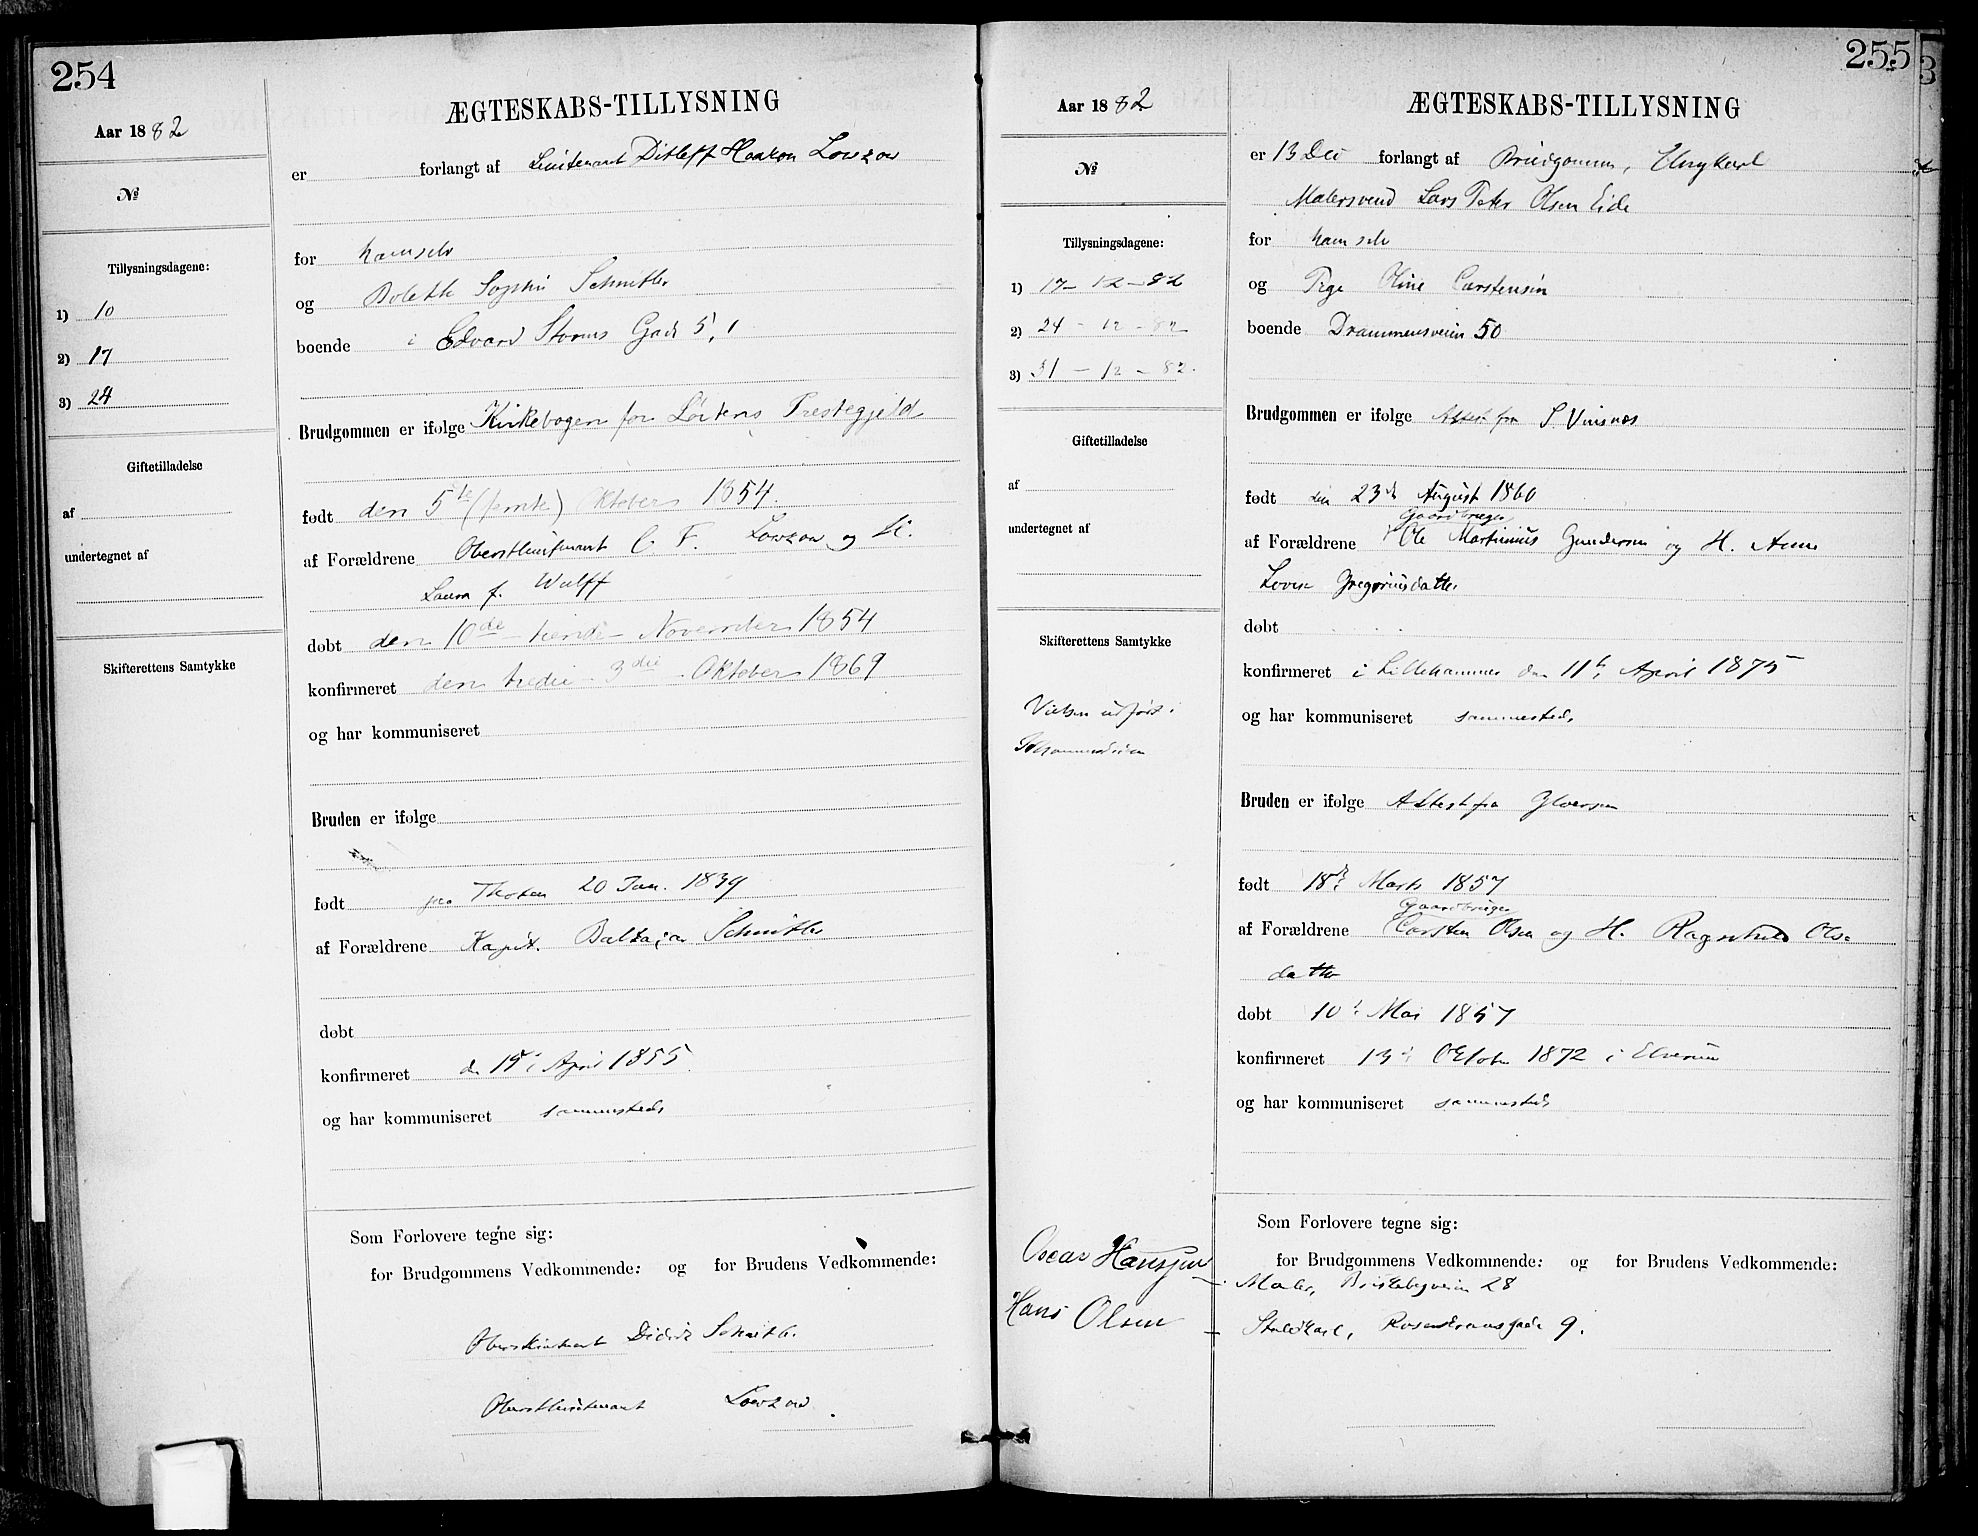 254
Aar 1882
№
Tillysningsdagene:
1) 10
2) 17
3) 24
Giftetilladelse
af
undertegnet af
Skifterettens Samtykke
ÆGTESKABS-TILLYSNING
er forlangt af Lieutenant Ditleff Haakon Lowzow
for ham selv
og Bolette Sophie Schnitler
boende i Edvard Storms Gade 5,1
Brudgommen er ifølge Kirkebogen for Løitens Prestegjeld
født den 5te (femte) Oktober 1854.
af Forældrene Oberstlieutenant C. F. Lowzow og
Laura f. Wulff
døbt den 10de tiende November 1854
konfirmeret den tredie 3die Oktober 1869
og har kommuniseret
Bruden er ifølge
født paa Thoten 20 Jan. 1839
af Forældrene Kapt. Baltazar Schnitler
døbt
konfirmeret April 1855.
og har kommuniseret sammesteds
Som Forlovere tegne sig:
for Brudgommens Vedkommende: og for Brudens Vedkommende:
Oberstlieutenant Didrik Schnitler
Oberstlieutenant Lowzow.
255
Aar 1882
№
Tillysningsdagene:
1) 17-12-82
2) 24-12-82
3) 31-12-82.
Giftetilladelse
af
undertegnet af
Skifterettens Samtykke
Vielsen udført i
Johanneskirken
Oscar Hanssen
Hans Olsen
ÆGTESKABS-TILLYSNING
er 13 Dec forlangt af Brudgommen, Ungkarl
Malersvend Lars Peter Olsen Eide
for ham selv
og Pige Oline Carstensen
boende Drammensveien 50
Brudgommen er ifølge Attest fra S.
født den 23de August 1860
Gaardbruger
af Forældrene Ole Martinius Gundersen og H. Anne
Lovise Gregoriusdatter
døbt
konfirmeret i Lillehammer den 11te April 1875
og har kommuniseret sammesteds
Bruden er ifølge Attest fra
født 18de Marts 1857
Gaardbruger
af Forældrene Carsten Olsen og H. Ragnhild Ols-
datter
døbt 10de Mai 1857
konfirmeret 13de October 1872 i Elverum
og har kommuniseret sammesteds
Som Forlovere tegne sig:
for Brudgommens Vedkommende: og for Brudens Vedkommende:
Maler, Briskebyveien 28
Staldkarl, Rosenkransgade 9.